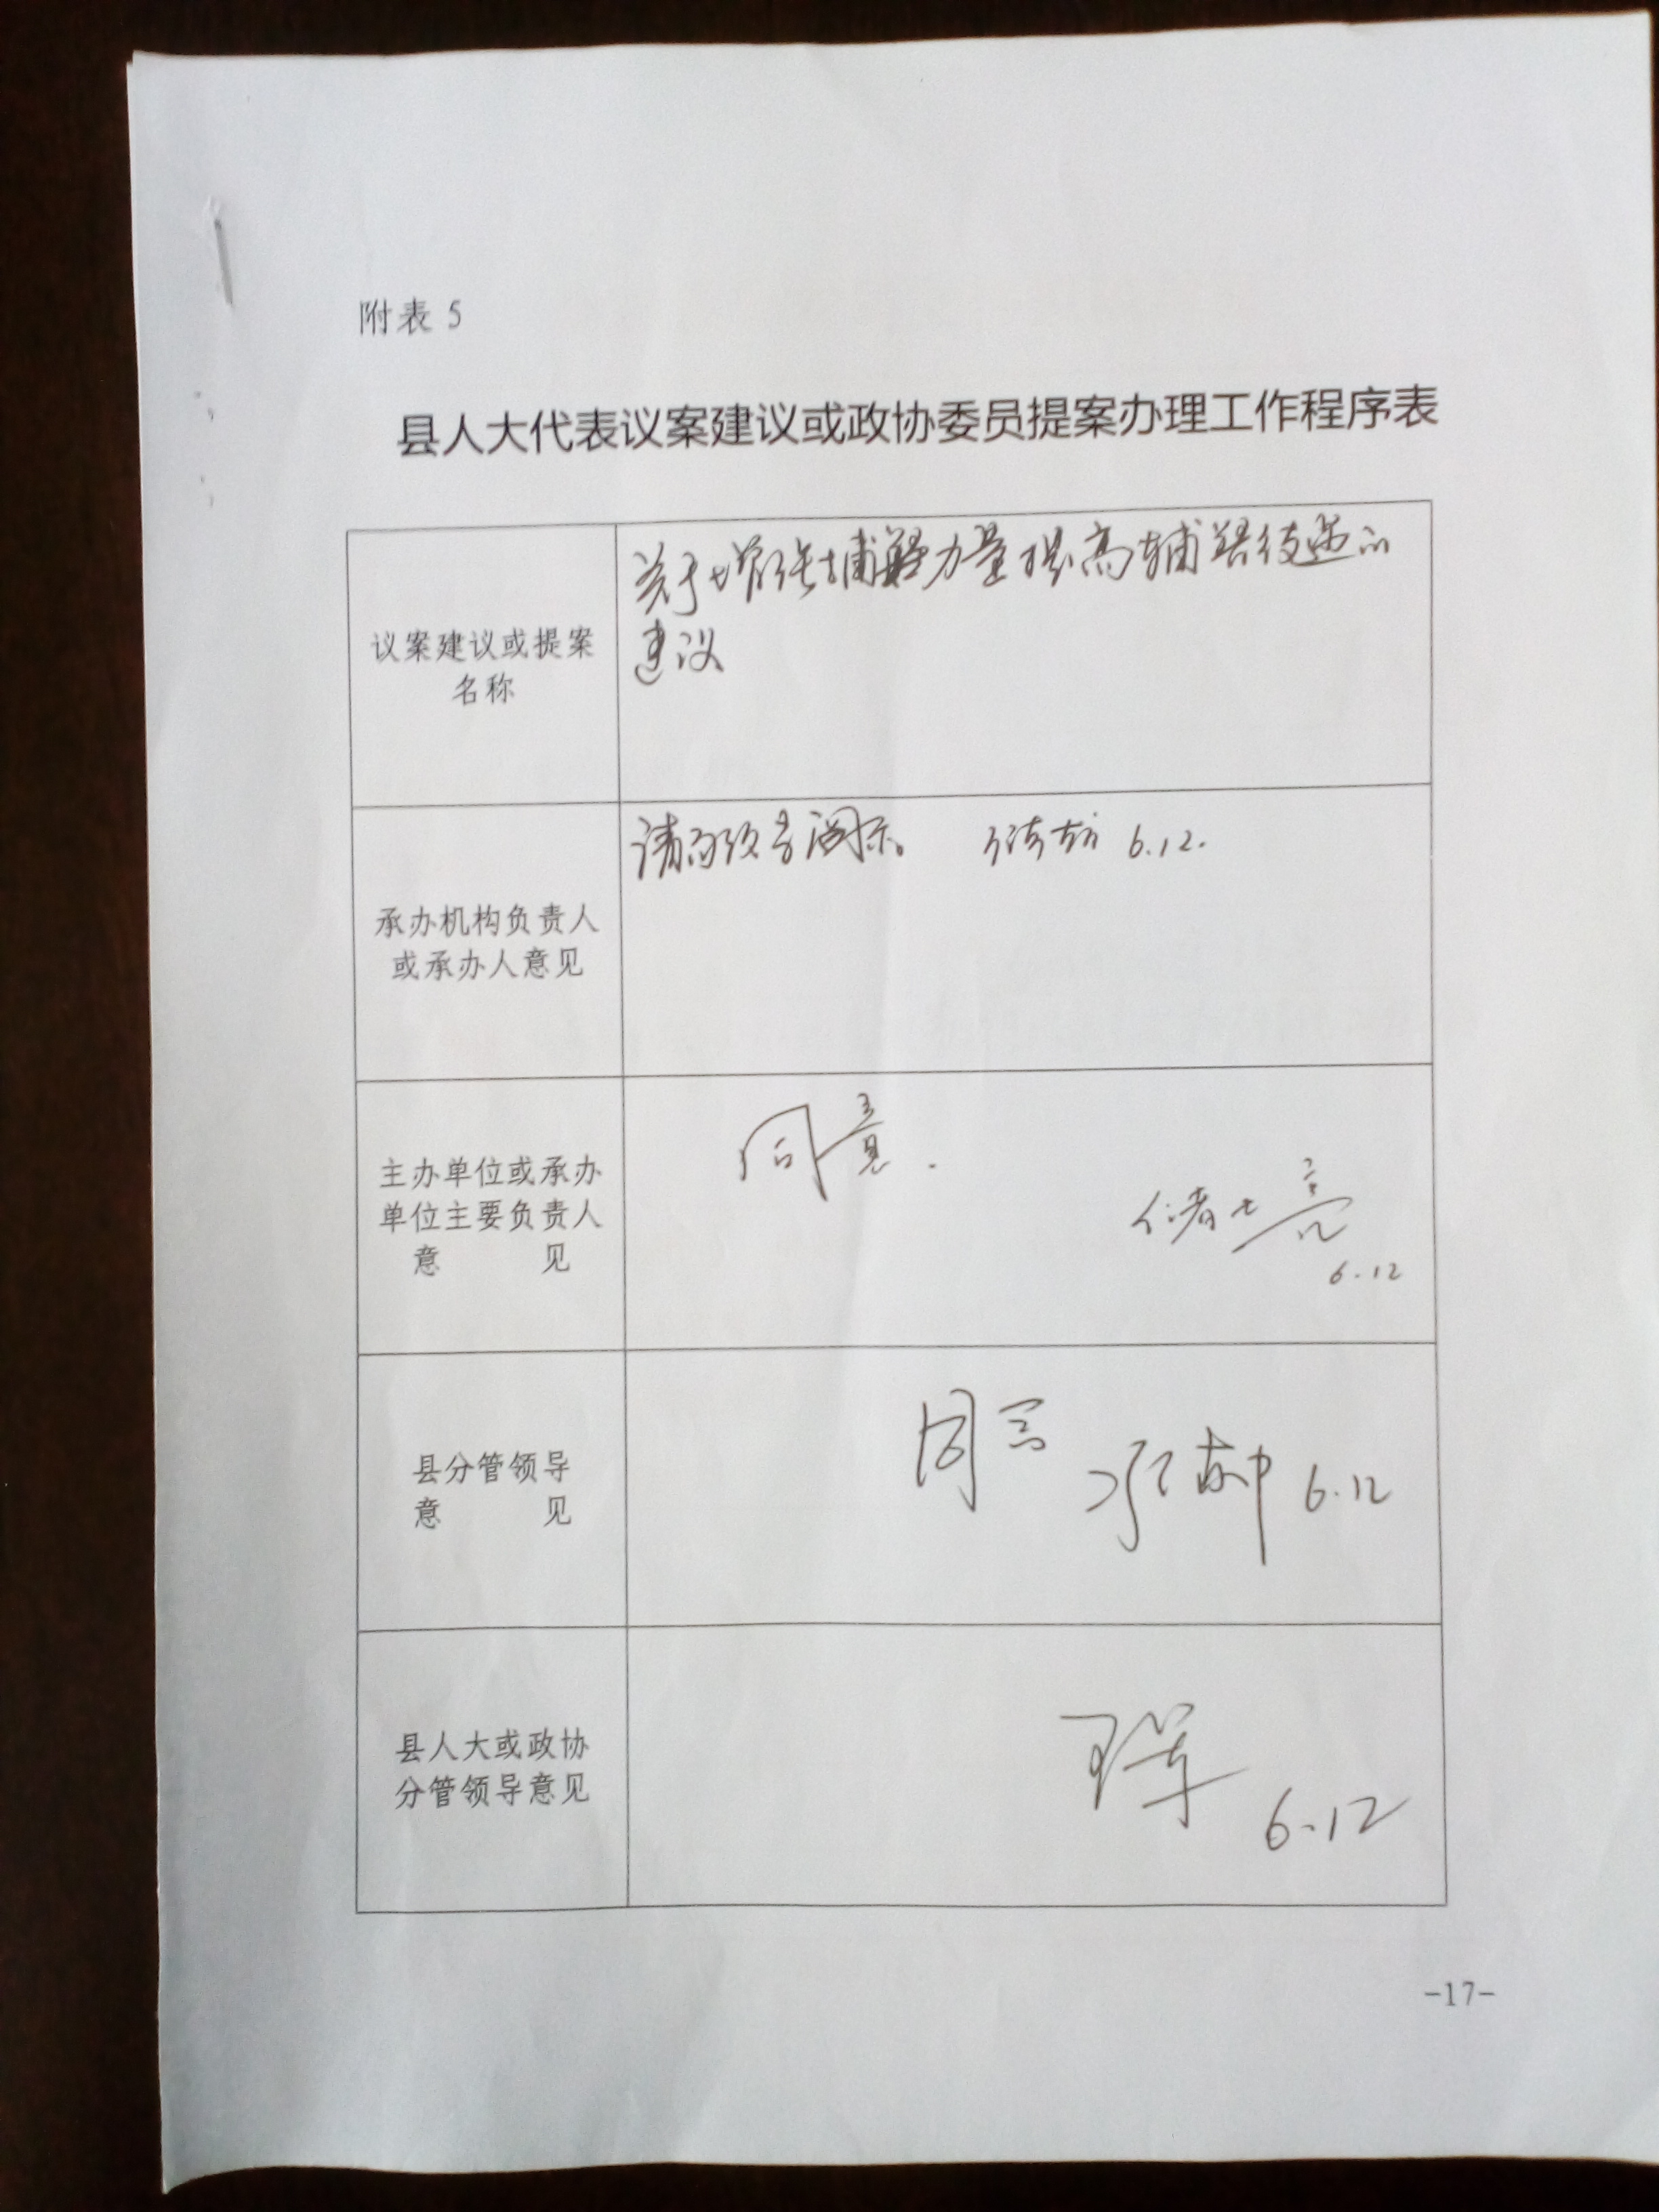 附表 5
县人大代表议案建议或政协委员提案办理工作程序表
议案建议或提案
名称
关于增强辅警力量提高辅警待遇的
建议
承办机构负责人
或承办人意见
请局领导阅示。 6.12.
主办单位或承办
单位主要负责人
意 见
同意.
6.12
县分管领导
意 见
同意
6.12
县人大或政协
分管领导意见
6.12
-17-